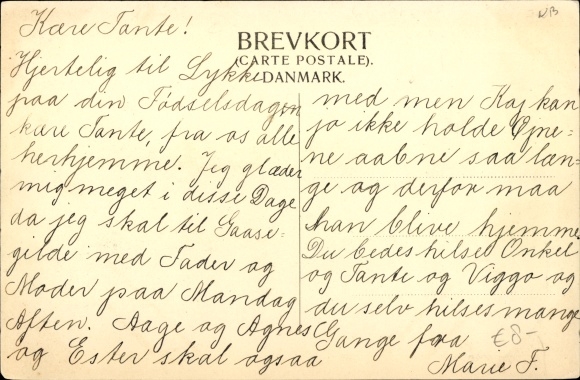 NB
Kære Tante!
BREVKORT
(CARTE POSTALE).
DANMARK.
Hjertelig til Lykke
paa din Fødselsdagen
kære Tante, fra os alle
herhjemme. Jeg glæder
mig meget i disse Dage
da jeg skal til Gaase-
gilde med Fader og
Moder paa Mandag
Aften. Aage og Agnes
og Ester skal ogsaa
med men Kaj kan
jo ikke holde Øjne-
ne aabne saa læn-
ge og derfor maa
han blive hjemme
Du bedes hilse Onkel
og Tante og Viggo og
du selv hilses mange
Gange fra
Marie F.
€8-